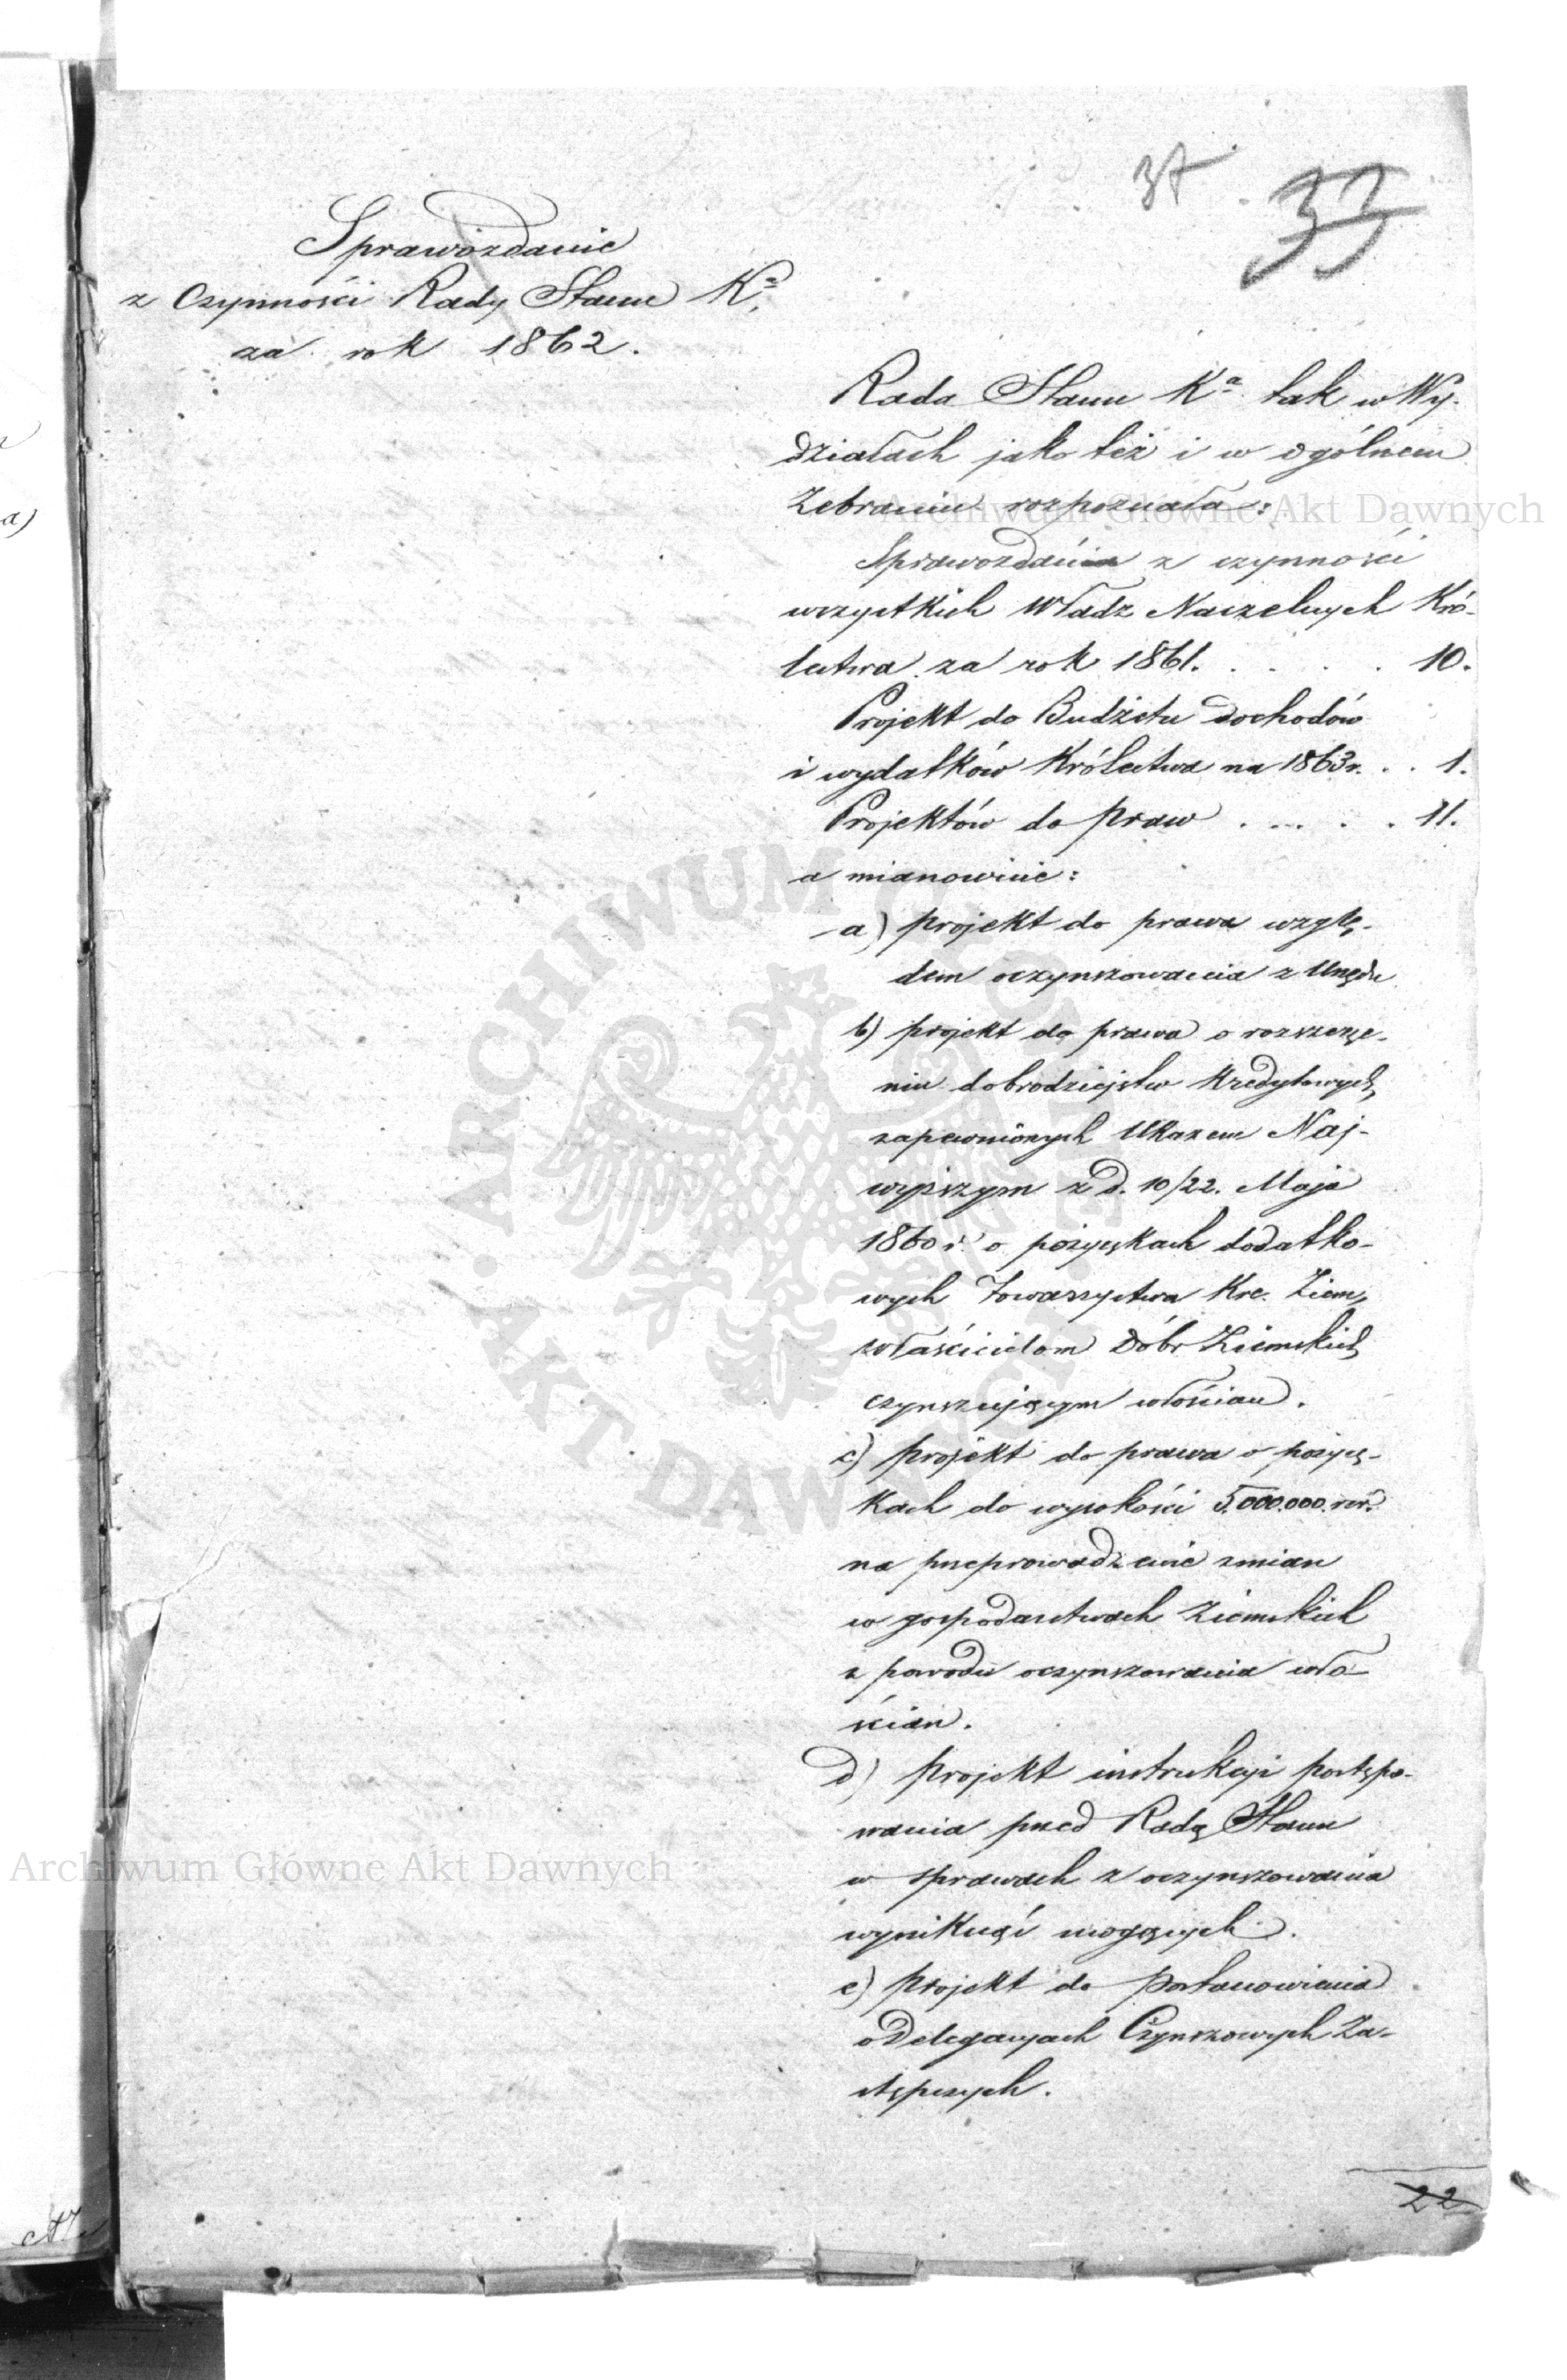 37
33
Sprawozdanie
z Czynności Rady Stanu Kа.
za rok 1862.
Rada Stanu Kа. tak w Wy-
działach jako też i w ogólnem
Zebraniu rozpoznała:
Sprawozdania z czynności
wszystkich Władz Naczelnych Kró-
lestwa za rok 1861. . . . . 10.
Projekt do Budżetu dochodów
i wydatków Królestwa na 1863 r. . . 1.
Projektów do praw . . . . . 11.
a mianowicie:
a) projekt do prawa wzglę-
dem oczynszowania z Urzędu
b) projekt do prawa o rozszerze-
niu dobrodziejstw kredytowych,
zapewnionych Ukazem Naj-
wyższym z d. 10/22. Maja
1860 r. o pożyczkach dodatko-
wych Towarzystwa Kre. Ziem,
właścicielom Dóbr Ziemskich,
czynszującym włościan.
c) projekt do prawa o pożycz-
kach do wysokości 5.000.000. rsr.
na przeprowadzenie zmian
w gospodarstwach Ziemskich
z powodu oczynszowania wło-
ścian.
d) projekt instrukcji postępo-
wania przed Radą Stanu
w sprawach z oczynszowania
wyniknąć mogących.
e) projekt do Postanowienia
o Delegacyach Czynszowych Za-
stępczych.
22
Archiwum Główne Akt Dawnych
Archiwum Główne Akt Dawnych
ARCHIWUM GŁÓWNE AKT DAWNYCH